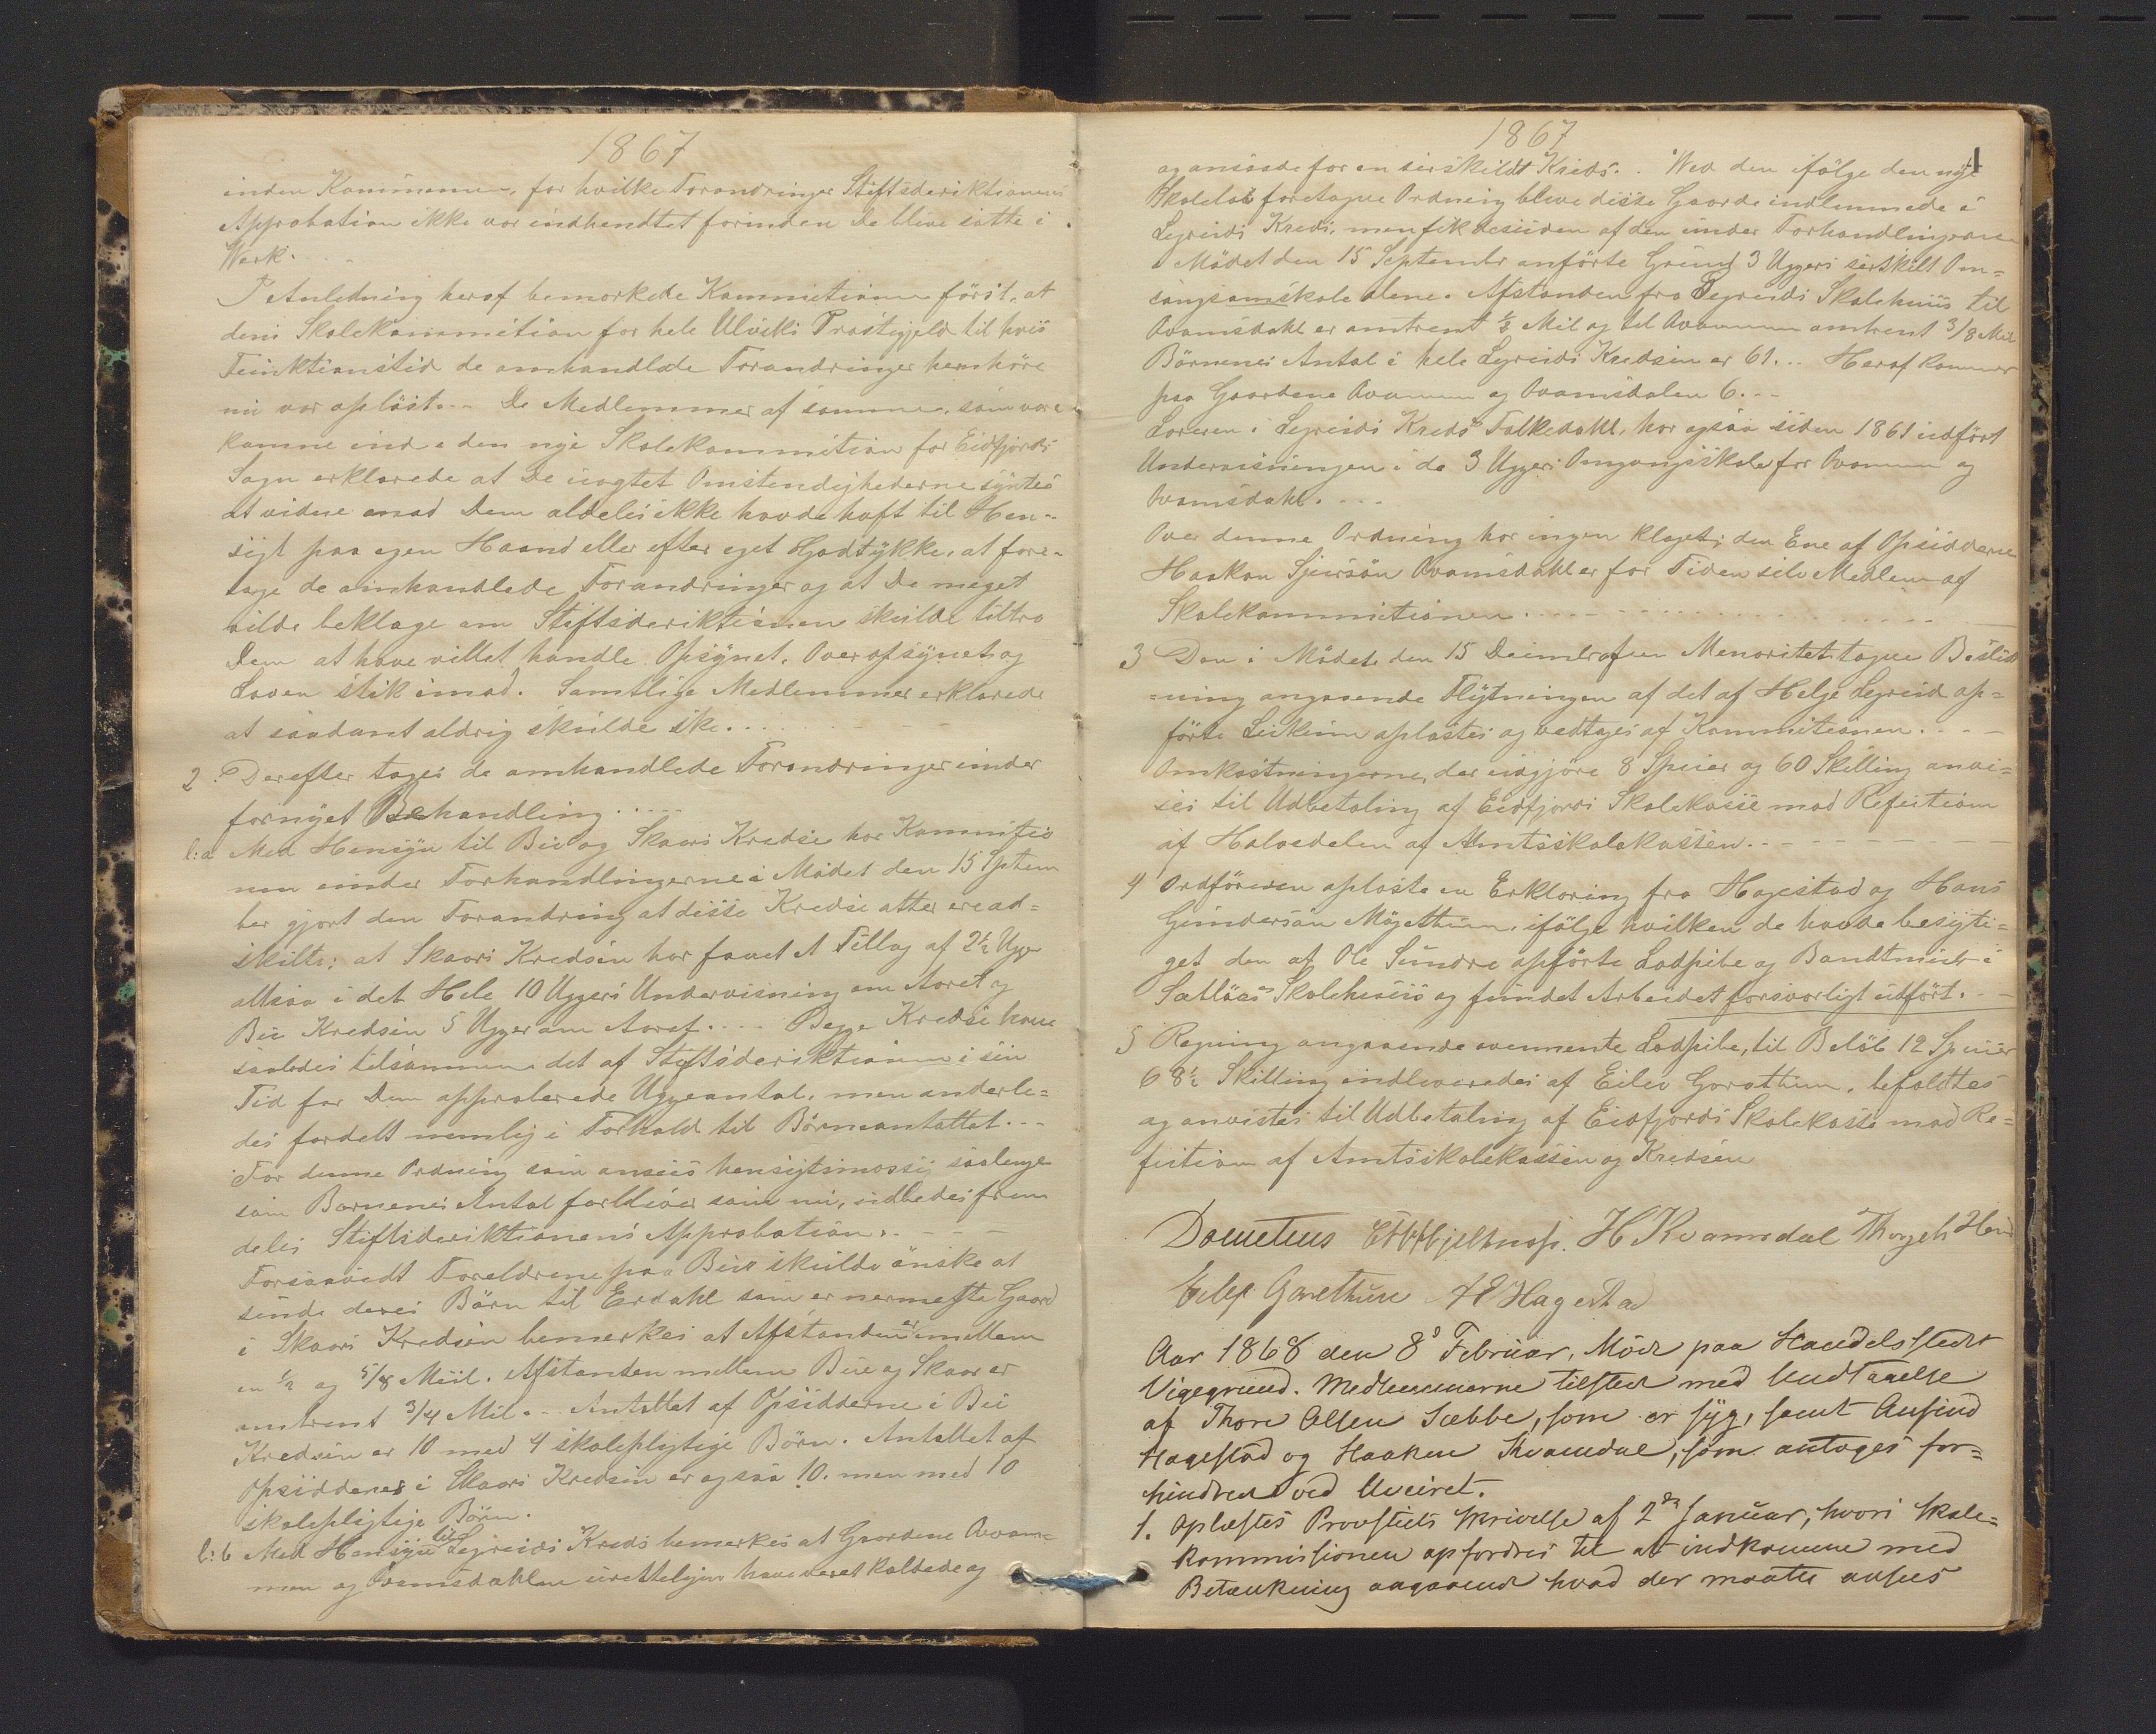 1867
inden Kommunen, for hvilke Forandringer Stiftsdirektionens
Approbation ikke var indhendtet forinden de bleve satte i
Værk. . . .
I Anledning heraf bemærkede Kommitionen först, at
den Skolekommition for hele Ulviks Præstegjeld til hvis
Funktionstid de omhandlede Forandringer henhöre
nu var oplöst. . . De Medlemmer af samme, som vare
komne ind i den nye Skolekommition for Eidfjords
Sogn erklærede at De uagtet Omstendighederne syntes
at vidne mod Dem aldeles ikke havde haft til Hen-
sigt paa egen Haand eller efter eget Godtykke, at fore-
tage de omhandlede Forandringer og at De meget
vilde beklage om Stiftsdirektionen skulde tiltro
Dem at have villet handle Opsynet, Overopsynet og
Loven stik imod. Samtlige Medlemmer erklærede
at saadant aldrig skulde ske. . .
2. Derefter toges de omhandlede Forandringer under
fornyet Behandling. . . . .
l:a Med Hensyn til Bu og Skaars Kredse har Kommitio
nen under Forhandlingerne i Mödet den 15 Septem
ber gjort den Forandring at disse Kredse atter ere ad=
skilte; at Skaars Kredsen har faaet et Tillæg af 2½ Uger
altsaa i det Hele 10 Ugers Undervisning om Aaret og
Bu Kredsen 5 Uger om Aaret. . . . Begge Kredse have
saaledes tilsammen det af Stiftsdirektionen i sin
Tid for Dem approberede Ugeantal, men anderle=
des fordelt nemlig i Forhold til Börneantallet. . .
For denne Ordning som ansees hensigtsmæssig saalenge
som Börnenes Antal forbliver som nu, udbedes frem
deles Stiftsdirektionens Approbation. . . .
Forsaavidt Foreldrene paa Bu skulde önske at
sende deres Börn til Erdahl som er nermeste Gaard
i Skaars Kredsen bemerkes at Afstanden er imellem
en ½ og 5/8 Miil. Afstanden mellem Bu og Skaar er
omtrent 3/4 Mil. . Antallet af Opsidderne i Bu
Kredsen er 10 med 4 skolepligtige Börn. Antallet af
Opsiddenes i Skaars Kredsen er ogsaa 10. men med 10
skolepligtige Börn.
l:b Med Hensyn til Legreids Kreds bemerkes at Gaardene Qvam-
men og Qvamsdahlen urettelygen have veret kaldede og
1867
og ansaade for en serskildt Kreds. . Ved den ifölge den nye
Skolelov foretagne Ordning bleve disse Gaarde indlemmede i
Legreids Kreds, men fik desuden af den under Forhandlingerne
i Mödet den 15 September anförte Grund 3 Ugers serskilt Om=
gangsomskole alene. Afstanden fra Legreids Skolehuus til
Qvamsdahl er omtrent ½ Mil og til Qvammen omtrent 3/8 Mil
Börnenes Antal i hele Legreids Kredsen er 61. . . Heraf kommer
paa Gaardene Qvammen og Qvamsdalen 6. . .
Læreren i Legreids Kreds Falkedahl, har ogsaa siden 1861 udfört
Undervisningen i de 3 Ugers Omgangsskole for Qvammen og
Qvamsdahl. . . .
Over denne Ordning har ingen klaget; den Ene af Opsidderne
Haakon Sjursön Qvamsdahl er for Tiden selv Medlem af
Skolekommitionen. . . .
3 Den i Mödet den 15 af en Menoritet tagne Bestem
=ning angaaende Flytningen af det af Helge Legreid op=
förte oplæstes og vedtoges af Kommitionen. . . .
Omkostningerne, der udgjöre 8 Specier og 60 Skilling anvi=
ses til Udbetaling af Eidfjords Skolekasse mod Refution
af Halvedelen af Amtsskolekassen. . . .
4 Ordföreren oplæste en Erklæring fra Hagestad og Hans
Gundersön Mögethun, ifölge hvilken de havde besigti=
get den af Ole Simdre opförte Lodpibe og Bandtmur i
Sætlöås Skolehuus og fundet Arbeidet forsvarligt udfört. . .
5 Regning angaaende ovennevnte Lodpibe, til Belöb 12 Specier
68½ Skilling indleveredes af Eilev Garathun, befaldtes
og anvistes til Udbetaling af Eidfjords Skolekasse mod Re=
fution af Amtsskolekassen og Kredsen
Dometius H Kvamsdal Thorgels Hereid
Eilef Garethun AE Hagestad
Aar 1868 den 8de Februar, Möde paa Handelsstedet
Vigegrund. Medlemmerne tilstede med Undtagelse
af Thore Olsen Sæbbe, som er syg, samt Anfind
Hagestad og Haaken Kvamdal, som antages for=
hindrede ved Uveiret.
1. Oplæstes Provstiets Skrivelse af 2den Januar, hvori Skole=
kommissionen opfordres til at indkomme med
Betænkning angaaende hvad der maatte ansees